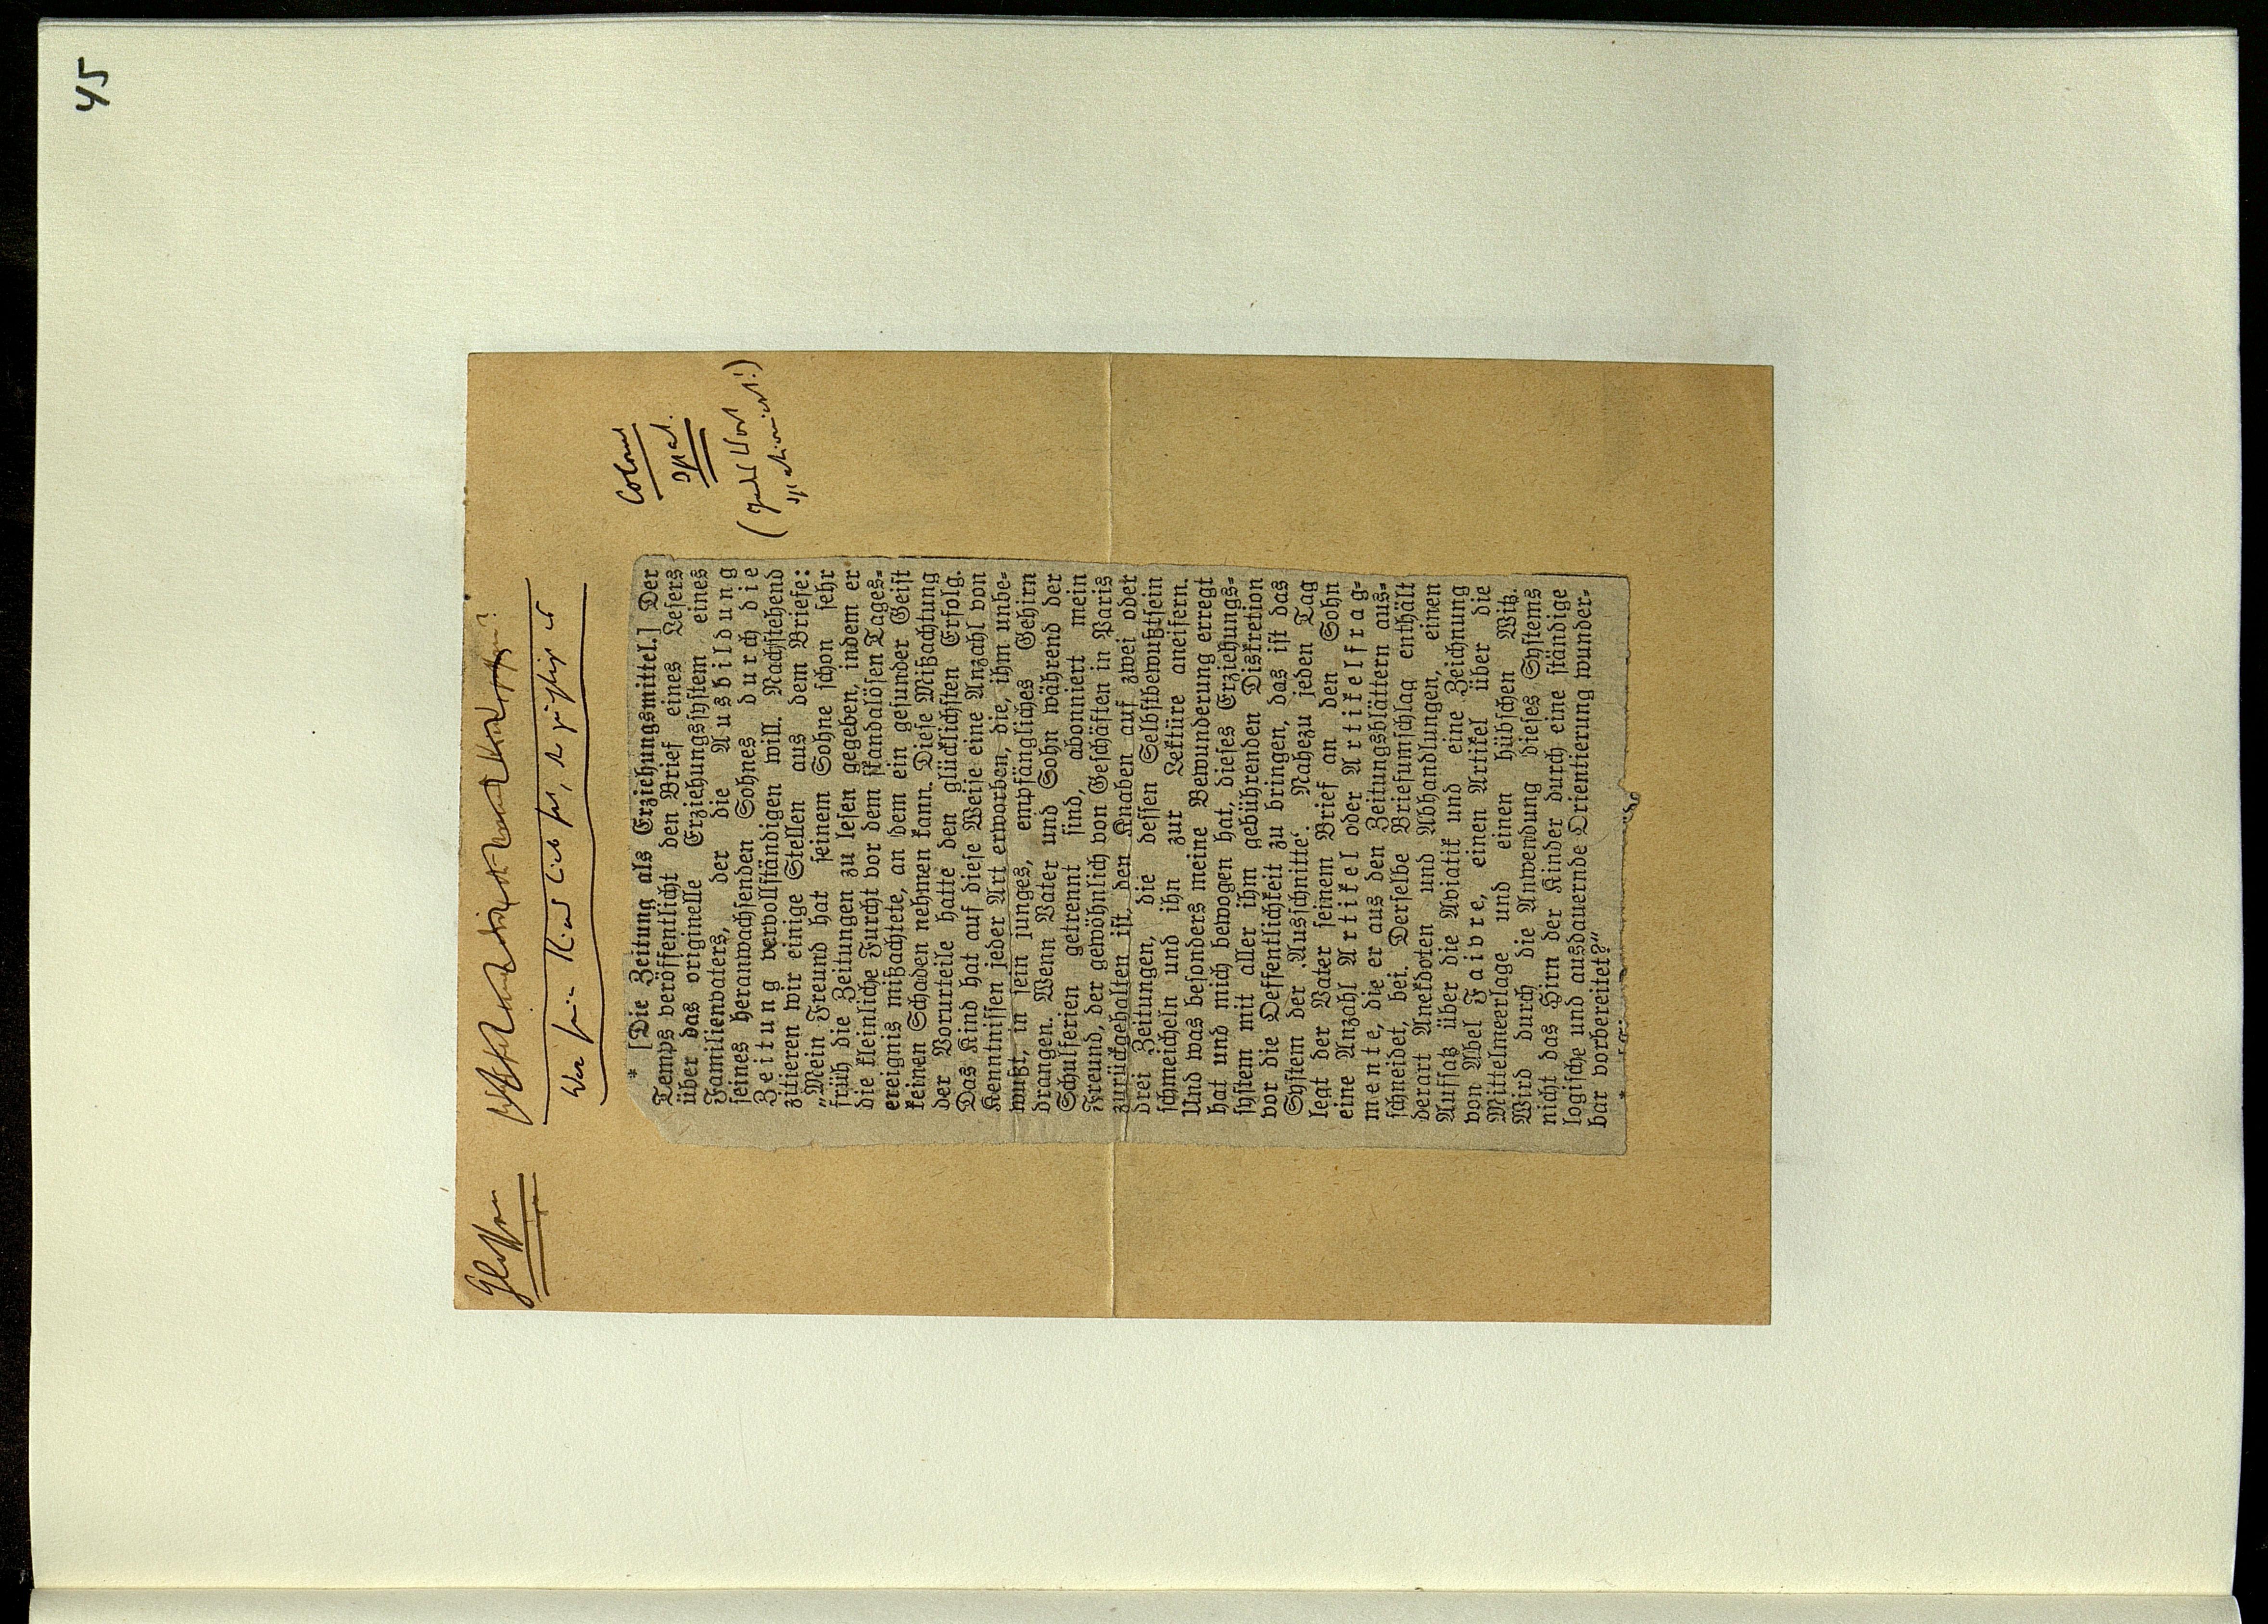 45
Glossen
Wer sein Kind lieb hat, der züchtigt es
Colonel
spat.
* [Die Zeitung als Erziehungsmittel.] Der
Temps veröffentlicht den Brief eines Lesers
über das originelle Erziehungssystem eines
Familienvaters, der die Ausbildung
seines heranwachsenden Sohnes durch die
Zeitung vervollständigen will. Nachstehend
zitieren wir einige Stellen aus dem Briefe:
„Mein Freund hat seinem Sohne schon sehr
früh die Zeitungen zu lesen gegeben, indem er
die kleinliche Furcht vor dem skandalösen Tages-
ereignis mißachtete, an dem ein gesunder Geist
keinen Schaden nehmen kann. Diese Mißachtung
der Vorurteile hatte den glücklichsten Erfolg.
Das Kind hat auf diese Weise eine Anzahl von
Kenntnissen jeder Art erworben, die, ihm unbe-
wußt, in sein junges, empfängliches Gehirn
drangen. Wenn Vater und Sohn während der
Schulferien getrennt sind, abonniert mein
Freund, der gewöhnlich von Geschäften in Paris
zurückgehalten ist, den Knaben auf zwei oder
drei Zeitungen, die dessen Selbstbewußtsein
schmeicheln und ihn zur Lektüre aneifern.
Und was besonders meine Bewunderung erregt
hat und mich bewogen hat, dieses Erziehungs-
system mit aller ihm gebührenden Diskretion
vor die Oeffentlichkeit zu bringen, das ist das
System der ‚Ausschnitte‘. Nahezu jeden Tag
legt der Vater seinem Brief an den Sohn
eine Anzahl Artikel oder Artikelfrag-
mente, die er aus den Zeitungsblättern aus-
schneidet, bei. Derselbe Briefumschlag enthält
derart Anekdoten und Abhandlungen, einen
Aufsatz über die Aviatik und eine Zeichnung
von Abel Faivre, einen Artikel über die
Mittelmeerlage und einen hübschen Witz.
Wird durch die Anwendung dieses Systems
nicht das Hirn der Kinder durch eine ständige
logische und ausdauernde Orientierung wunder-
bar vorbereitet?“